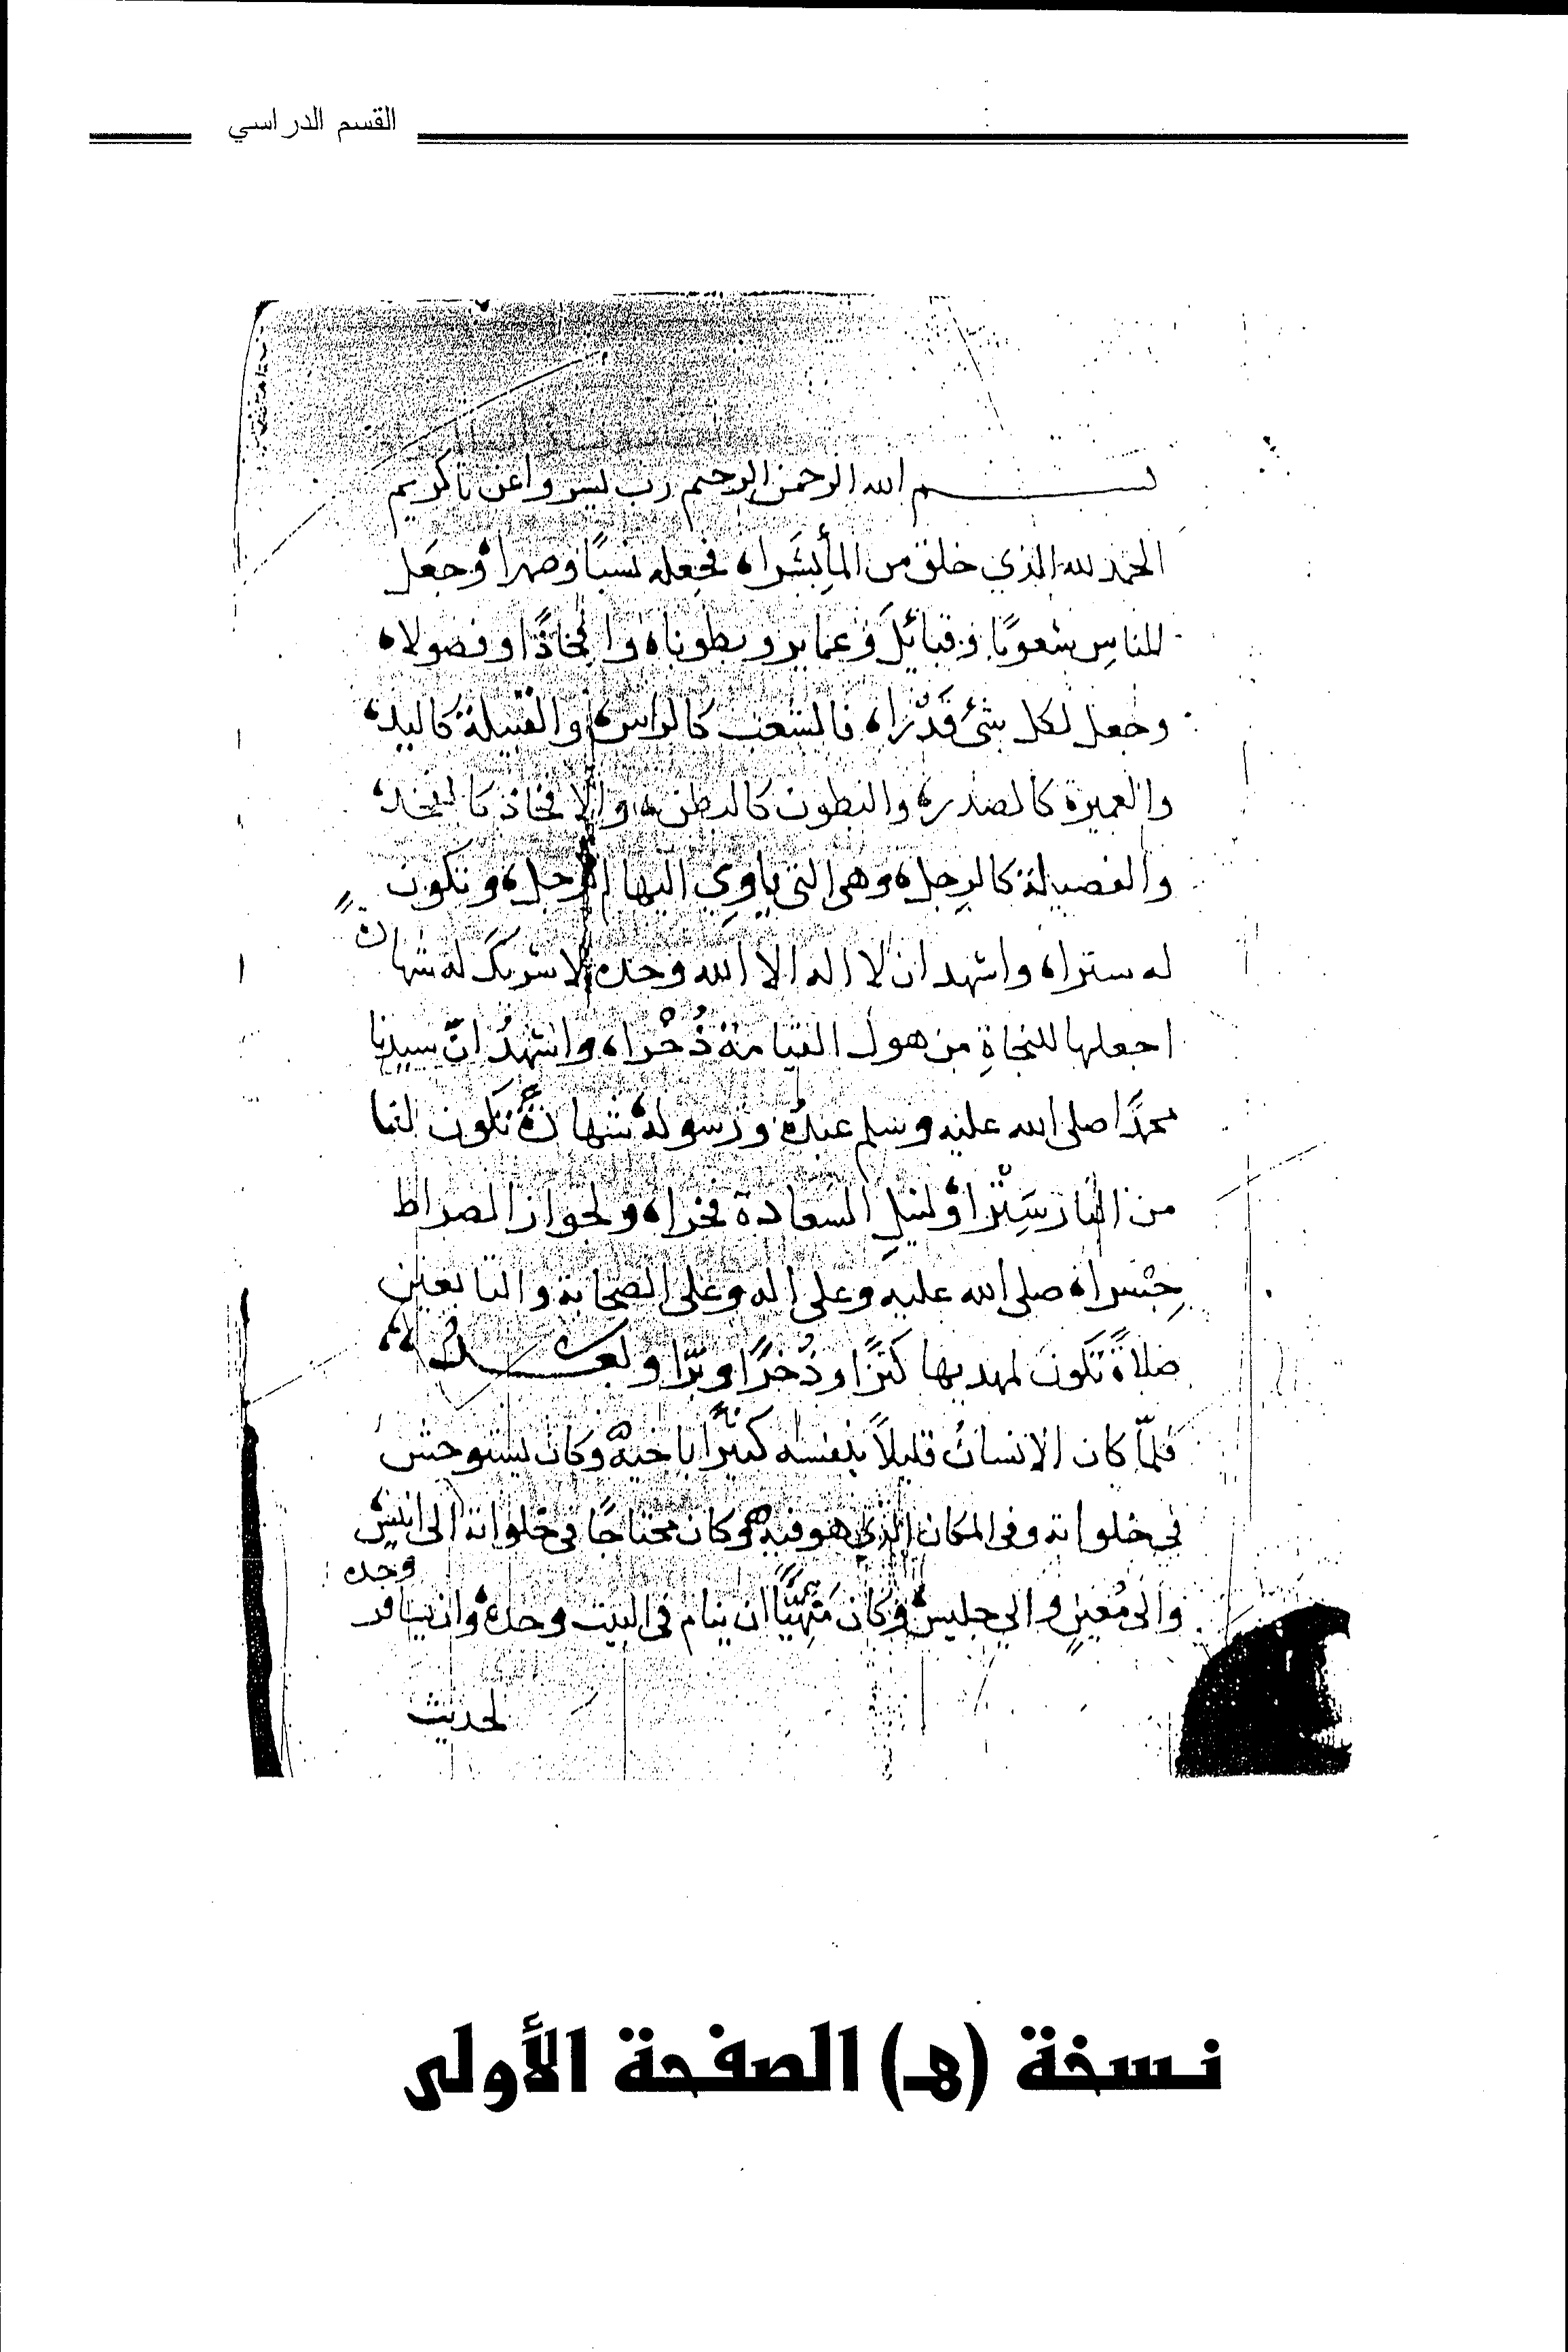 القسم الدراسي
بسم الله الرحمن الرحيم رب يسر واعن ياكريم
الحمد لله الذي خلق من الماء بشرا، فجعله نسبًا وصهرا، وجعل
للناس شعوبًا وقبائلَ وعماير وبطونا، وافخاذًا وفصولا،
وجعل لكل شيء قَدْرا، فالشعب كالراس، والقبيلة كاليد،
والعميرة كالصدر، والبطون كالبطن، والافخاذ كالفخذ،
والفصيلة كالرِجل، وهي التي ياوِي اليها الرجل، وتكون
له سترا، واشهد ان لا اله الا الله وحده لا شريك له شهادةً
اجعلها للنجاةِ من هول القيامة ذُخْرا، واشهدُ انّ سيدنا
محمدًا صلى الله عليه وسلم عبدُه ورسوله، شهادةً تكون لنا
من النار سَِتْرا، ولنيلِ السعادة فخرا، ولجواز الصراط
جِسرا، صلى الله عليه وعلى اله وعلى الصحابة والتابعين
صلاةً تكون لمهديها كنزًا وذُخرًا وبرّا وبعد،
فلمّا كان الانسانُ قليلاً بنفسه كثيرًا باخيه وكان يستوحش
في خلواته وفي المكان الذي هو فيه، وكان محتاجًا في خلواته الى انيس،
والى مُعينٍ والي جليس، وكان مَنْهيًّا ان ينام في البيت وحده، وان يسافر وحده
لحديث
نسخة (هـ) الصفحة الأولى